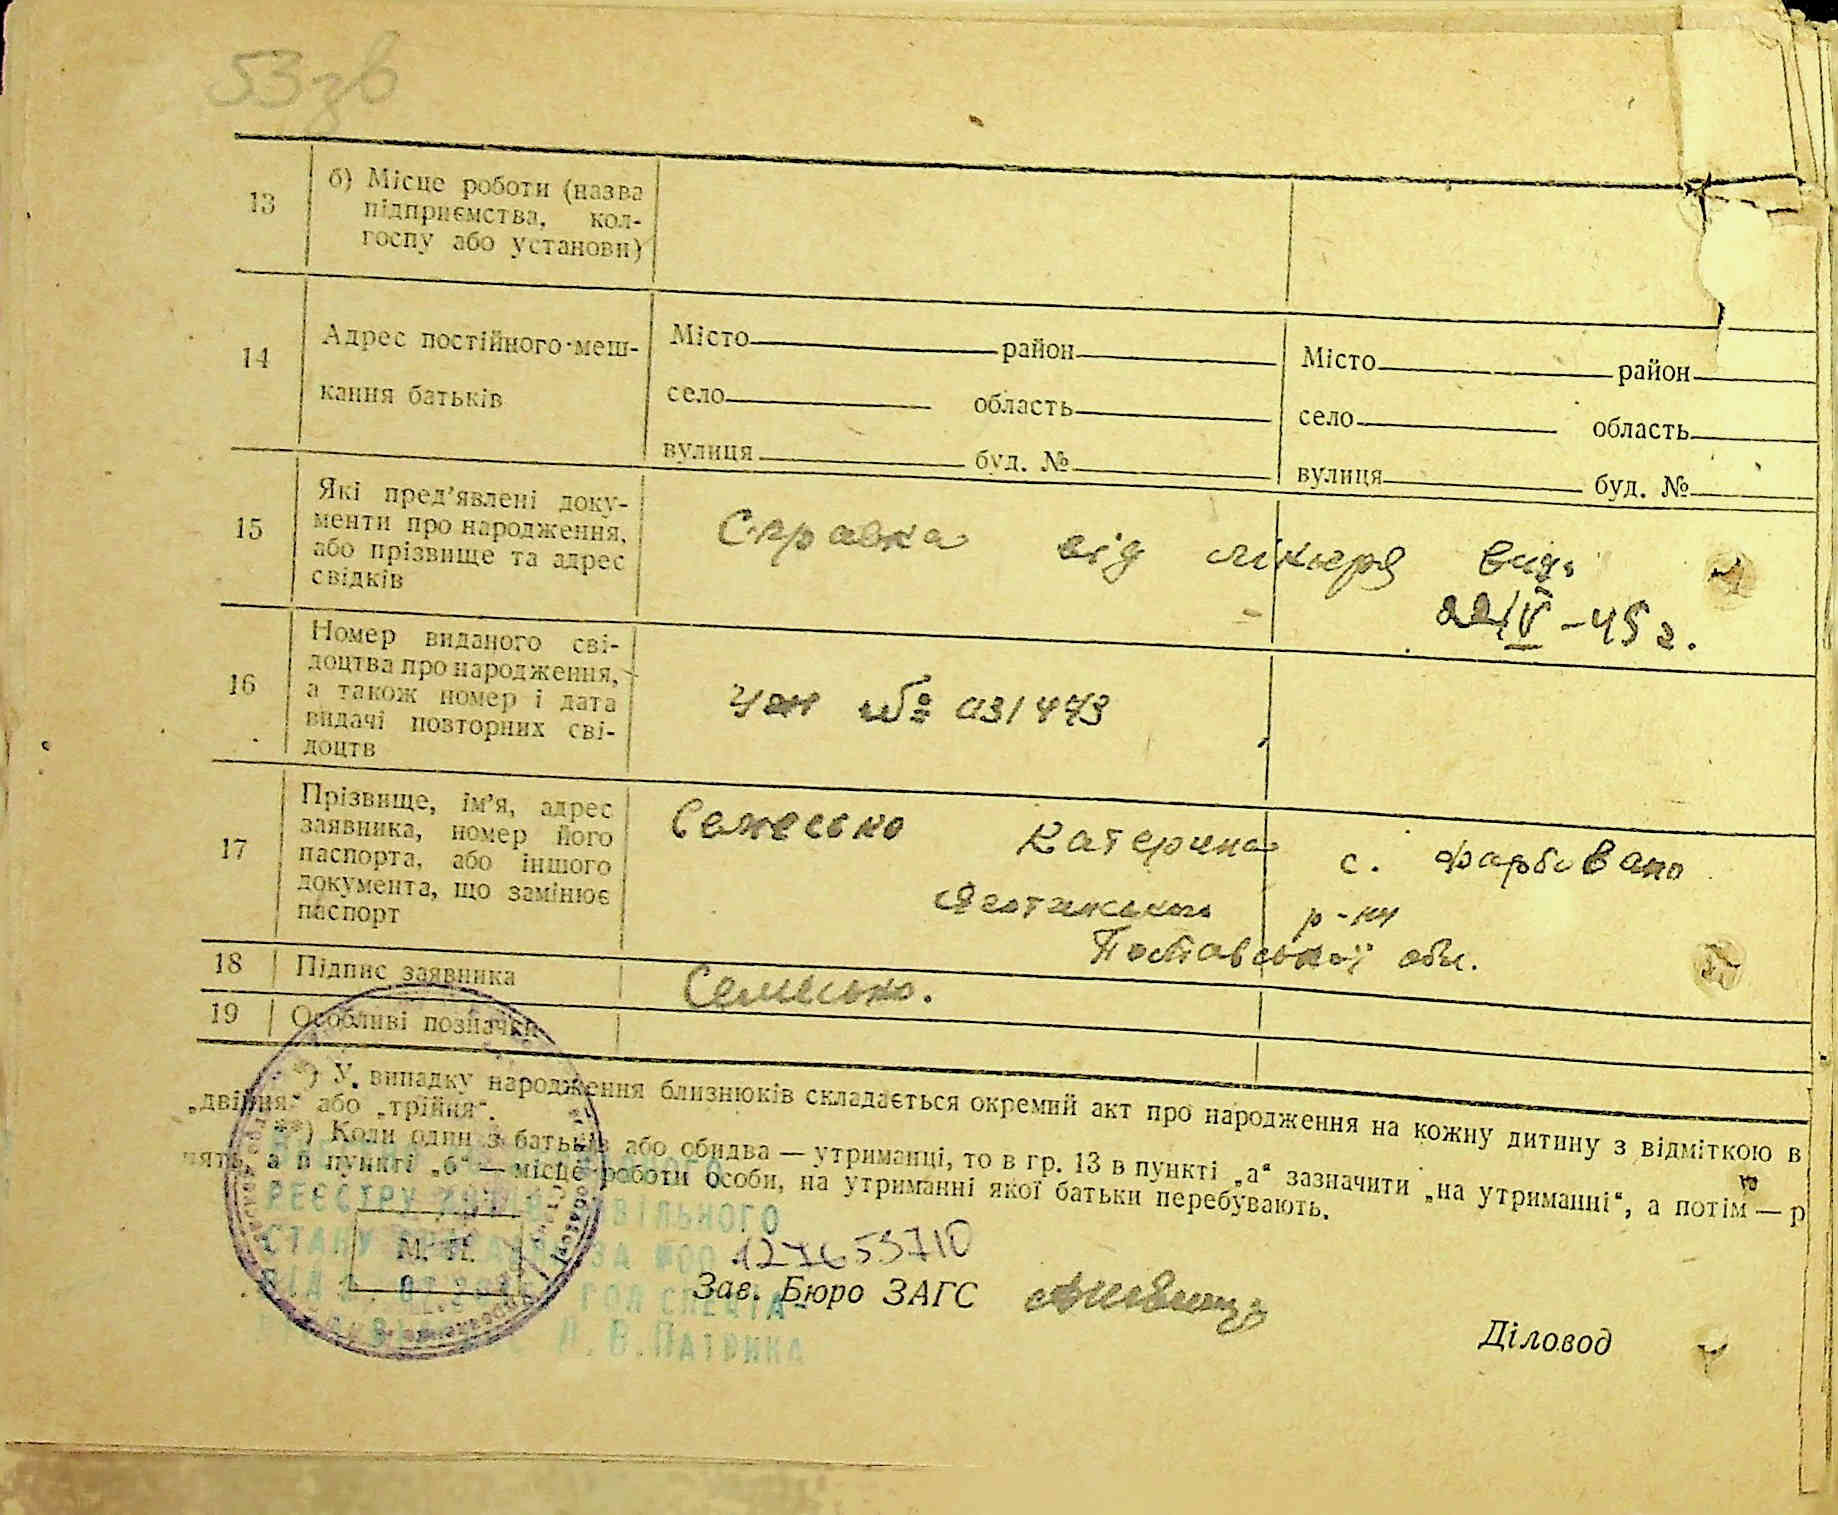 53зв
13
б) Місце роботи (назва
підприємства, кол-
госпу або установи)
14
Адрес постійного меш-
кання батьків
Місто район
село область
вулиця буд. №
Місто район
село область
вулиця буд. №
15
Які пред'явлені доку-
менти про народження,
або прізвище та адрес
свідків
Справка від лікаря вид.
22/IV-45 г.
16
Номер виданого сві-
доцтва про народження,
а також номер і дата
видачі повторних сві-
доцтв
№ 031473
17
Прізвище, ім'я, адрес
заявника, номер його
паспорта, або іншого
документа, що замінює
паспорт
Катерина с. Фарбовано
р-ну
Полтавської обл.
18
Підпис заявника
19
Особливі позначки
*) У випадку народження близнюків складається окремий акт про народження на кожну дитину з відміткою в
„двійня" або „трійня".
**) Коли один з батьків або обидва — утриманці, то в гр. 13 в пункті „а" зазначити „на утриманні", а потім — р
нять, а в пункті „б" — місце роботи особи, на утриманні якої батьки перебувають.
РЕЄСТРУ ЦИВІЛЬНОГО
СТАНУ ЗА №00 127653710
М. П.
Зав. Бюро ЗАГС
Діловод
В. ПАТРИКА